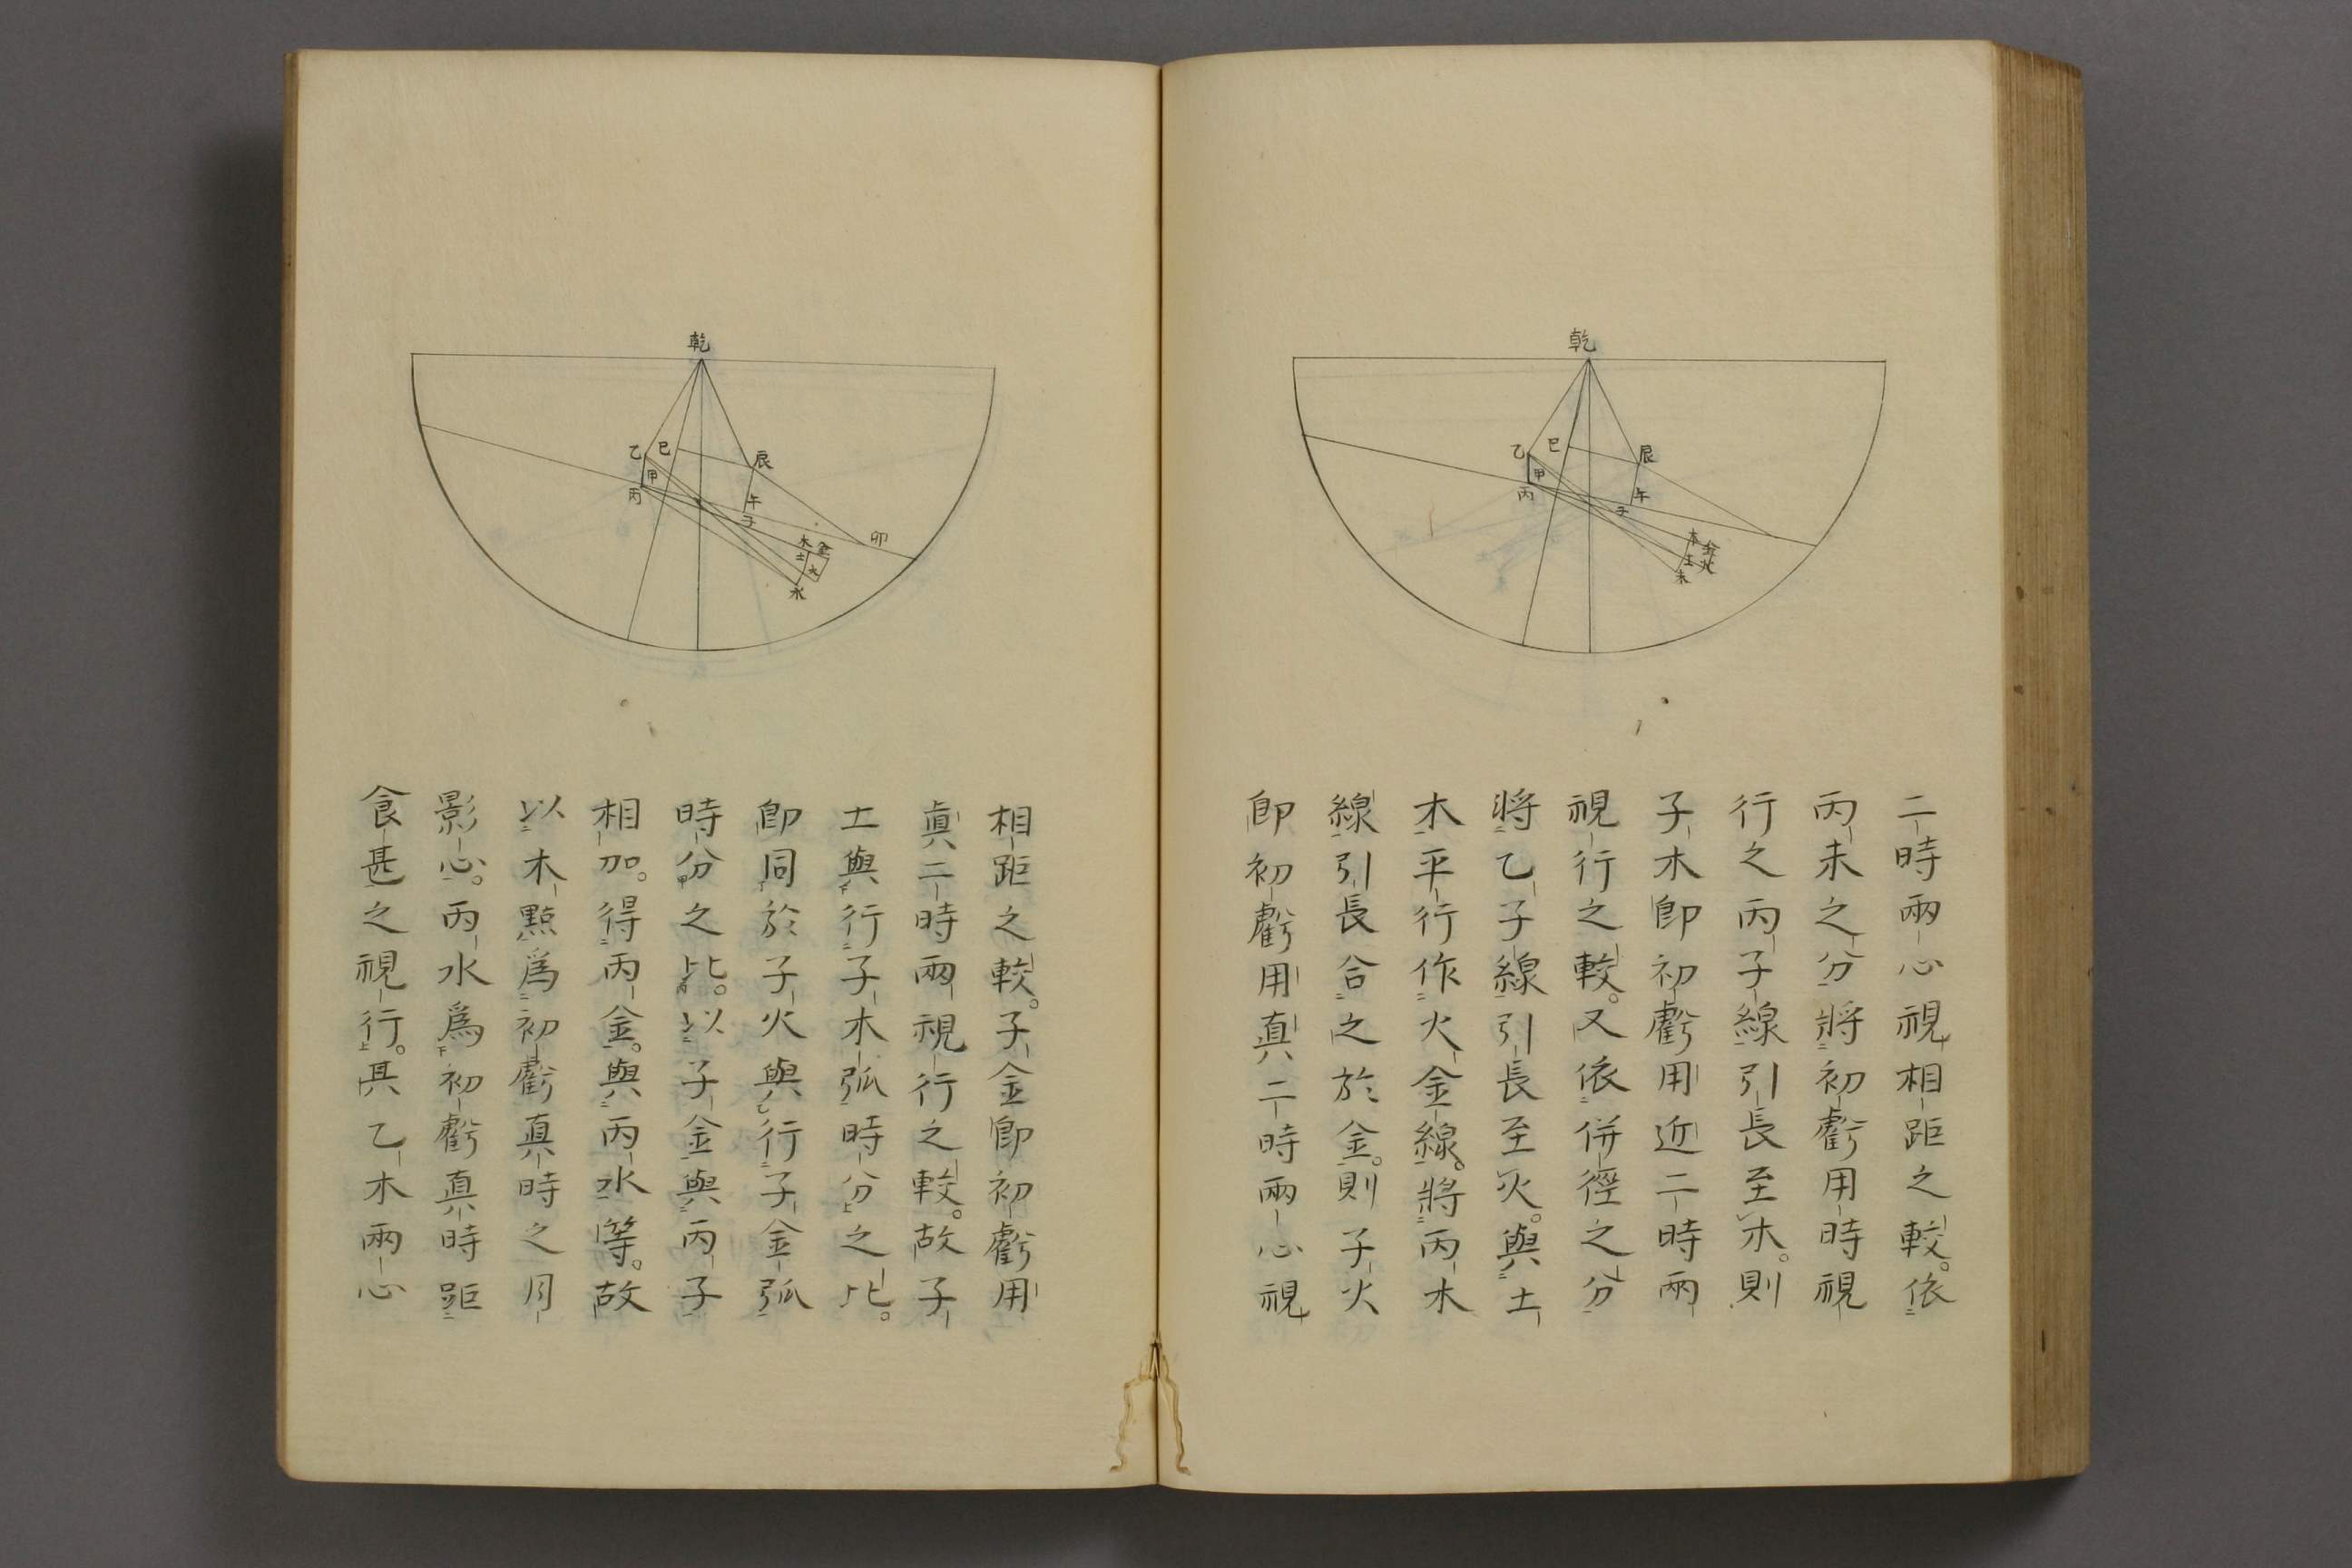 乾
乙
巳
辰
甲
丙
午
子
木
金
土
火
未
二時兩心視相距之較。依
丙未之分將初虧用時視
行之丙子線引長至木。則
子木卽初虧用近二時兩
視行之較。又依併徑之分
將乙子線引長至火。與土
木平行作火金線。將丙木
線引長合之於金。則子火
卽初虧用真二時兩心視
乾
乙
巳
辰
甲
丙
午
子
卯
木
金
土
火
水
相距之較。子金卽初虧用
真二時兩視行之較。故子
土與行子木弧時分之比。
卽同於子火與行子金弧
時分之比。以子金與丙子
相加。得丙金。與丙水等。故
以木點爲初虧真時之月
影心。丙水爲初虧真時距
食甚之視行。其乙木兩心